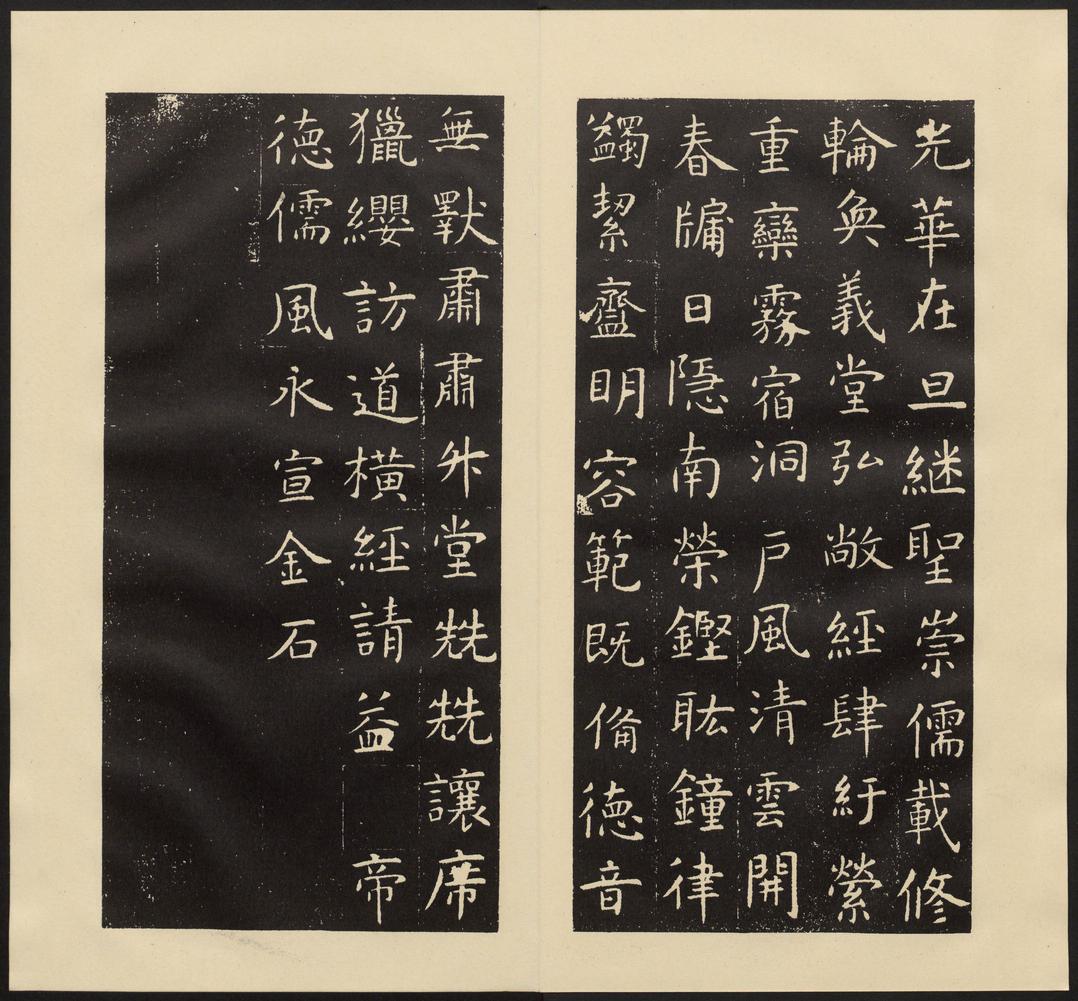 光華在旦継聖崇儒載修
輪奐義堂弘敞經肆紆縈
重欒霧宿洞戶風清雲開
春牗日隱南榮鏗耾鐘律
蠲絜齍明容範既俻德音
無斁肅肅升堂兟兟讓席
獵纓訪道横經請益帝
德儒風永宣金石